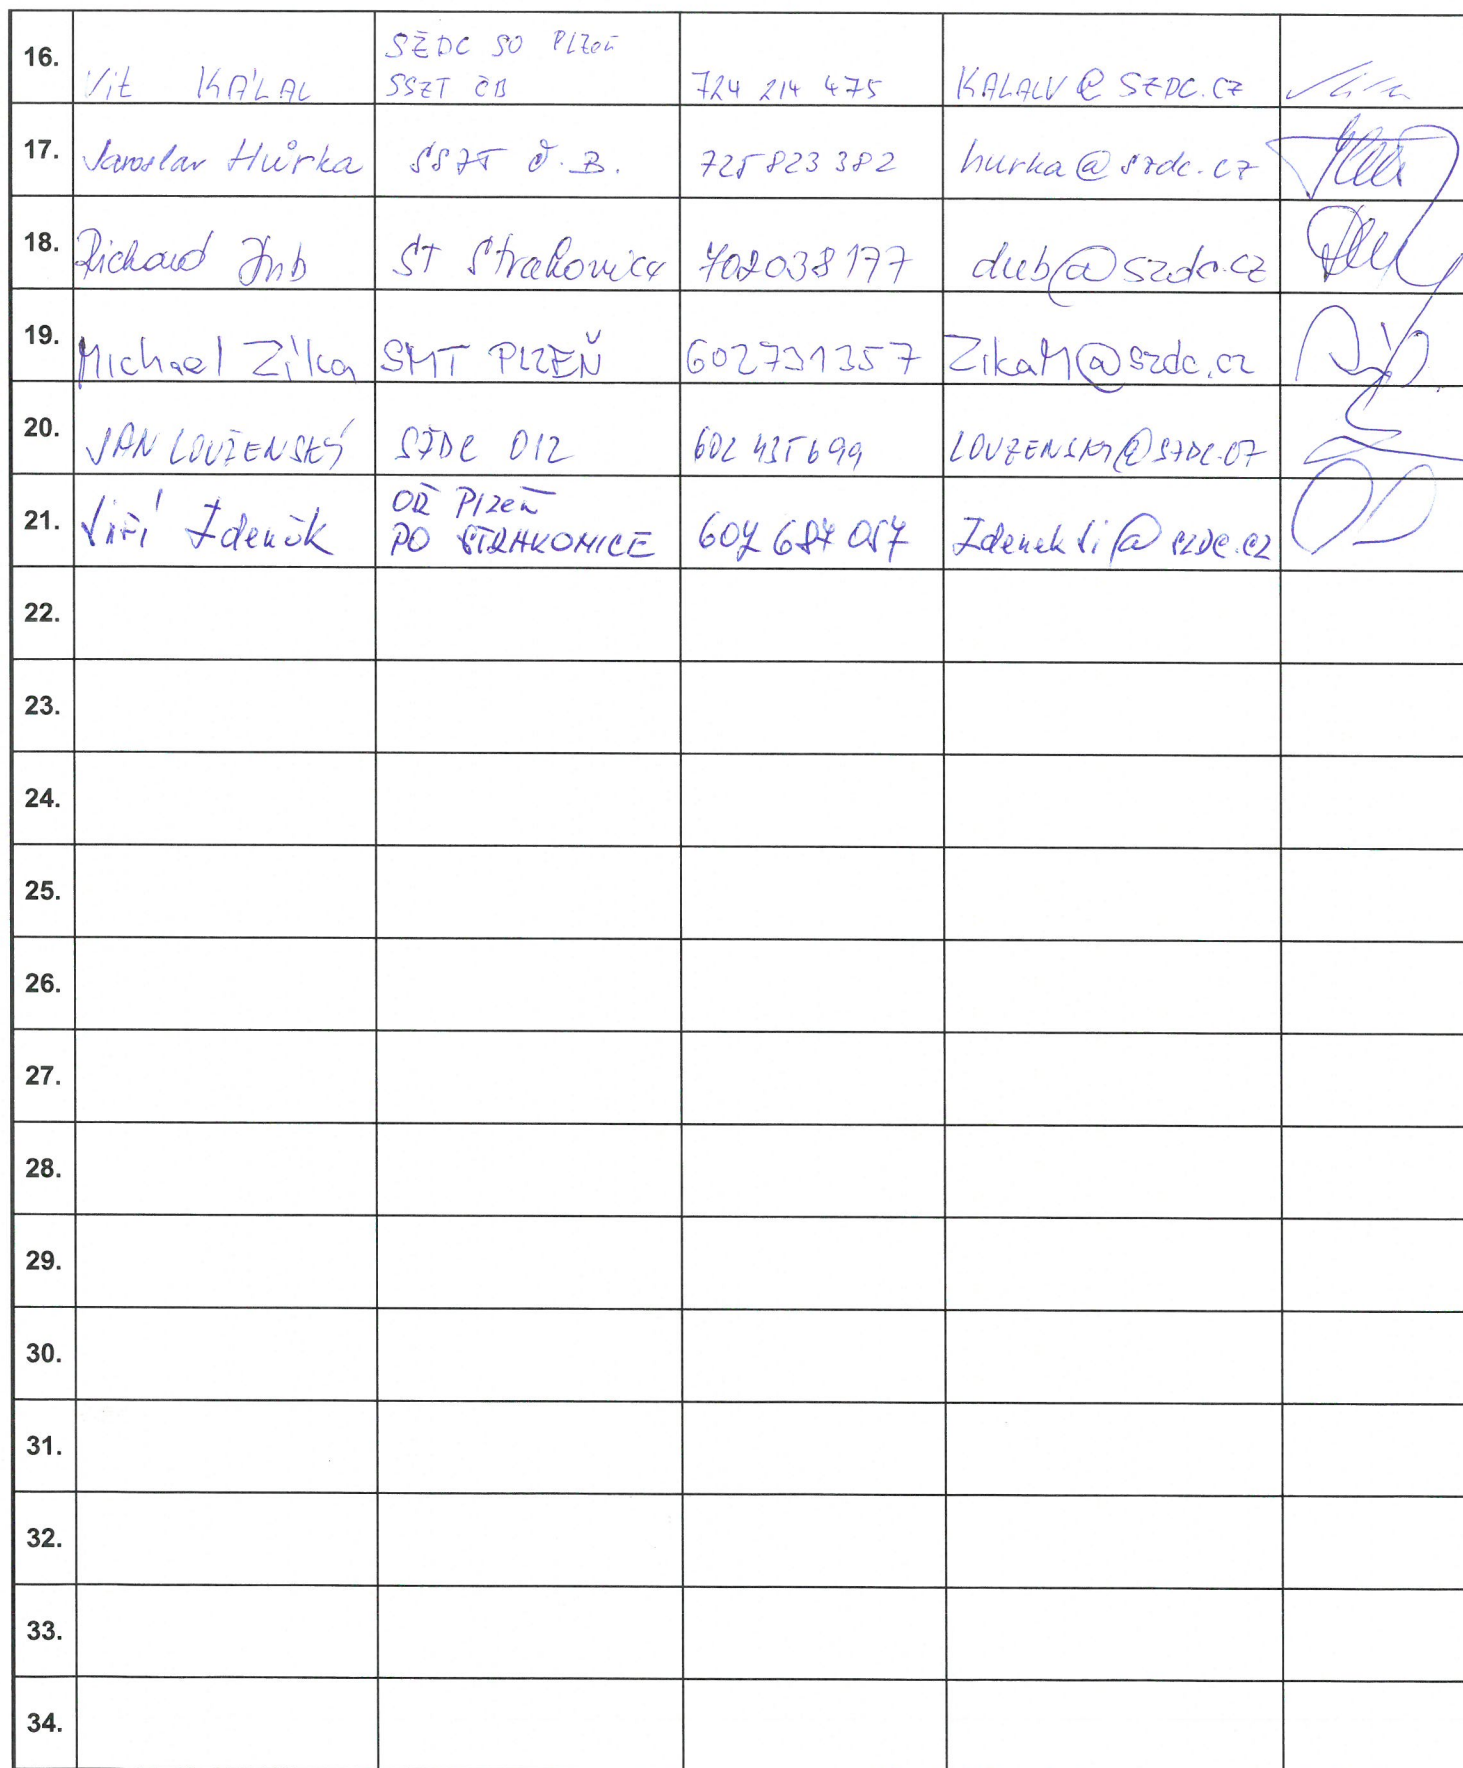 16. Vít KÁLAL SŽDC SO PLZEŇ SSZT ČB 724 214 475 KALALV@SZDC.CZ
17. Jaroslav Hůrka SSZT Č.B. 725 823 382 hurka@szdc.cz
18. Richard Dub ST Strakonice 702038177 dub@szdc.cz
19. Michael Zíka SMT PLZEŇ 602731357 ZikaM@szdc.cz
20. JAN LOUŽENSKÝ SŽDC O12 602 435 699 LOUZENSKY@SZDC.CZ
21. Jiří Zdeněk OŘ Plzeň PO STRAKONICE 607 687 057 ZdenekJi@szdc.cz
22.
23.
24.
25.
26.
27.
28.
29.
30.
31.
32.
33.
34.